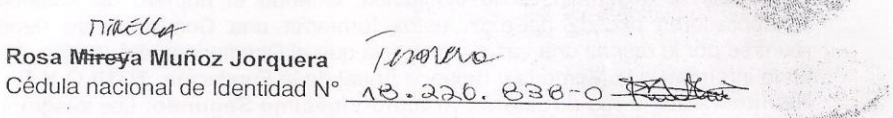 MIRELLA
Rosa Mireya Muñoz Jorquera Tesorera
Cédula nacional de Identidad N° 18.226.838-0